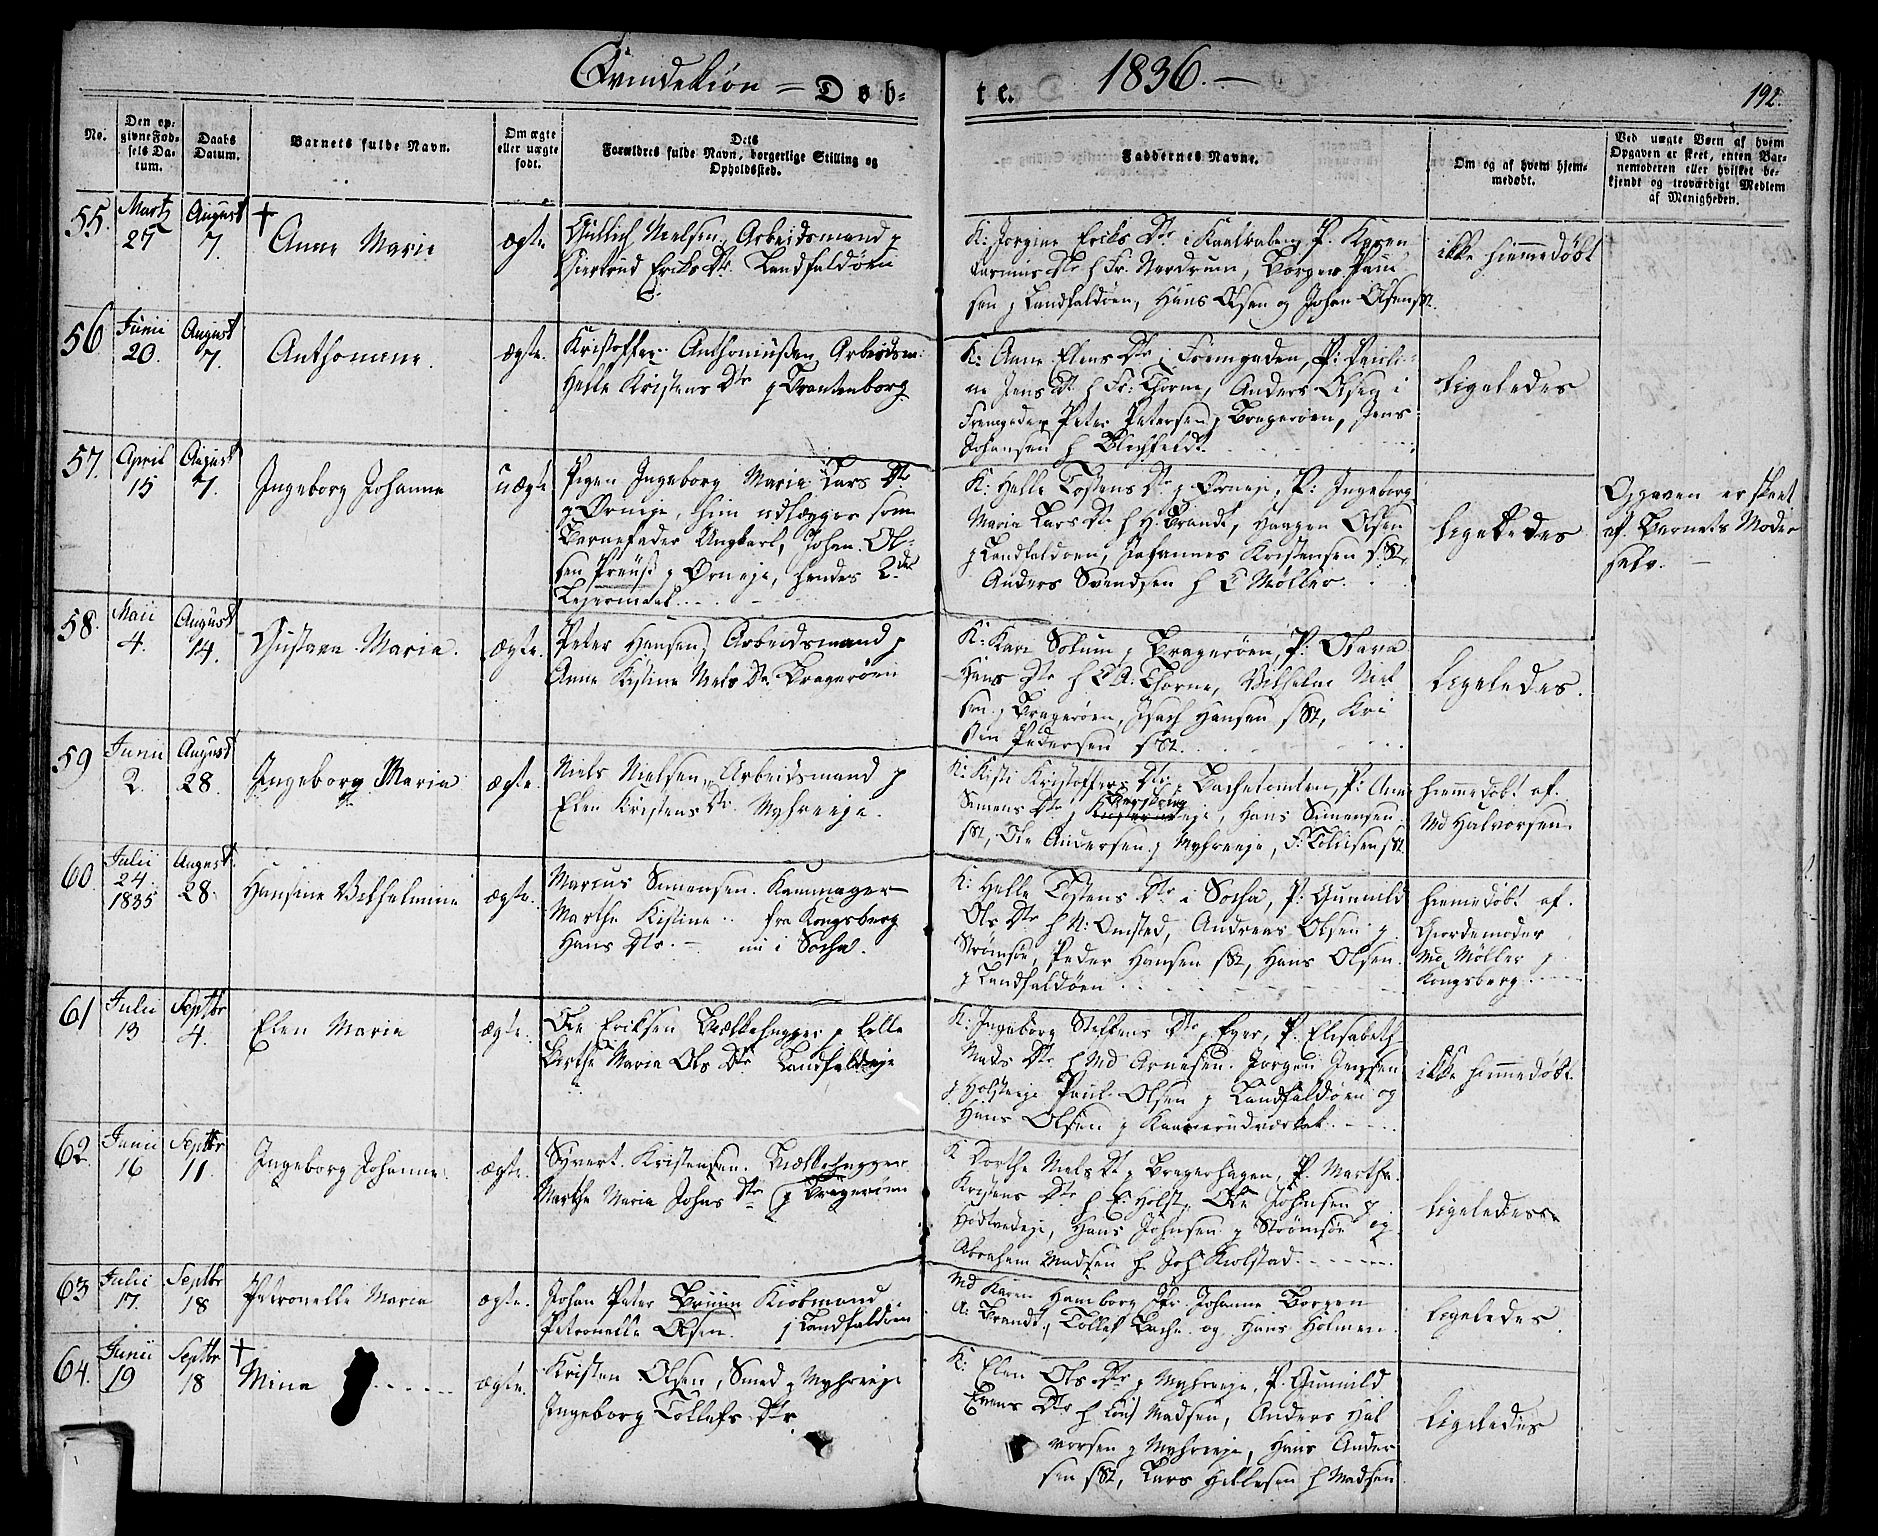 Qvindekiøn = Døb-
te. 1836.
192.
No.
Den op-
givne Fød-
sels Da-
tum.
Daabs
Datum.
Barnets fulde Navn.
Om ægte
eller uægte
født.
Dets
Forældres fulde Navn, borgerlige Stilling og
Opholdssted.
Faddernes Navne.
Om og af hvem hjem-
medøbt.
Ved uægte Børn af hvem
Opgaven er skeet, enten Bar-
nemoderen eller hvilket be-
kjendt og troværdigt Medlem
af Menigheden.
55.
Martz
27
August
7.
Anne Marie
ægte
Gullich Nielsen, Arbeidsmand p
Giertrud Eriks Dtr. Landfaldøen
K: Jorgine Eriks Dtr i P. Karen
Rasmus Dtr h Fr. Nordrum, Borger Paul
sen p Landfaldøen, Hans Olsen og Johan Olsen sst.
ikke hiemmedøbt
56
Junii
20.
August
7.
Anthonine.
ægte.
Kristoffer Anthoniusen, Arbeidsm:
Helle Kristens Dtr p Trantenborg
K: Anne Elens Dtr i P: Pauli-
ne Jens Dt h Fr: Thorne, Anders Olsen i
Peter Petersen p Bragerøen, Jens
Johansen h
Ligeledes
57.
April
15
August
7.
Ingeborg Johanne
uægte
Pigen Ingeborg Maria Lars Dtr
p Ørneje, hun udlægger som
Barnefader Ungkarl, Johan Ol-
sen Preus p Ørneje, hendes 2den
Leiermaal.
K: Helle Tostens Dtr p Ørneje, P: Ingeborg
Maria Lars Dtr h H. Brandt, Haagen Olsen
p Landfaldøen, Johannes Kristensen sst,
Anders Svendsen h C Møller.
Ligeledes
Opgaven er skeet
af Barnets Moder
selv. —
58.
Maii
4.
August
14.
Gustava Maria.
ægte.
Peter Hansen, Arbeidsmand p
Anne Kistine Niels Dtr. Bragerøen
K: Kari Solum p Bragerøen, P: Olava
Hans Dtr h C A: Thorne, Vilhelm Niel
sen p Bragerøen, Isach Hansen sst, Kri
Pedersen sst.
Ligeledes.
59
Junii
2.
August
28.
Ingeborg Maria
ægte.
Niels Nielsen, Arbeidsmand p
Elen Kristens Dtr. Myhreeje.
K: Kisti Kristoffers Dtr. Bachetomten, P: Ane
Simens Dtr p eje, Hans Simensen
sst, Ole Andersen p Myhreeje, F: Tollisen sst.
hiemedøbt af.
Md Halvorsen.
60.
Julii
24.
1835
August
28.
Hansine Vilhelmine
ægte.
Marcus Simensen. Kammager
Marthe Kistine .. fra Kongsberg
Hans Dtr. — nu i Socha.
K: Helle Tostens Dtr i Socha, P: Gunnild
Ols Dtr h N: Omsted, Andreas Olsen p
Strømsøe, Peder Hansen sst, Hans Olsen
p Landfaldøen
hiemedøbt af.
Giordemoder
Md Møller p
Kongsberg.
61
Julii
13
Septbr
4.
Elen Marie
ægte.
Ole Eriksen Bielkehugger p Lille
Berthe Maria Ols Dtr Landfaldeje
K: Ingeborg Steffens Dtr p Eger, P. Elisabeth
Mads Dtr h Md Arnesen. Jørgen Jensen
p Holsteeje Paul Olsen p Landfaldøen og
Hans Olsen p
ikke hiemmedøbt.
62.
Junii
16
Septbr
11.
Ingeborg Johanne.
ægte.
Syvert Kristensen. Bielkehugger
Marthe Maria Johns Dtr p Bragerøen
K Dorthe Niels Dt p Bragerhagen, P. Marthe
Kristens Dtr h E: Holst, Ole Johnsen p
Hans Johnsen p Strømsøe og
Abraham Madsen h. Joh Kiolstad.
Ligeledes
63
Julii
17.
Septbr
18
Petronelle Maria
ægte.
Johan Peter Bruun Kiøbmand
Petronelle Olsen. p Landfaldøen
Md Karen Hamborg, Jfr Johanne Borgen
A: Brandt, Tollef Bache og Hans Holmen.
Ligeledes
64.
Junii
19
Septbr
18
Mina
ægte.
Kristen Olsen, Smed p Myhreeje
Ingeborg Tollefs Dtr.
K: Elen Ols Dtr p Myhreeje, P. Gunnild
Evens Dtr h Madsen, Anders Hal
vorsen p Myhreeje, Hans Ander
sen sst, Lars Hellesen h Madsen
Ligeledes